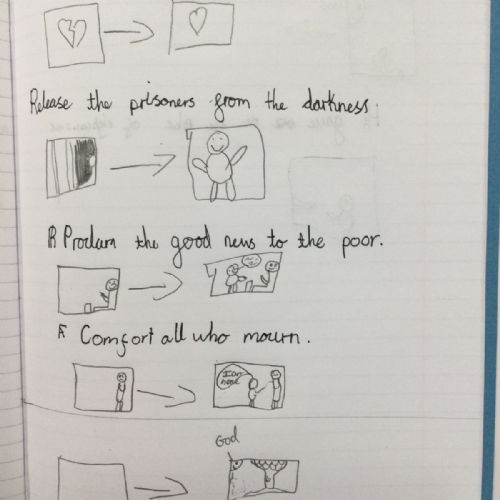 Release the prisoners from the darkness.
Proclam the good news to the poor.
Comfort all who mourn.
I am
here
God